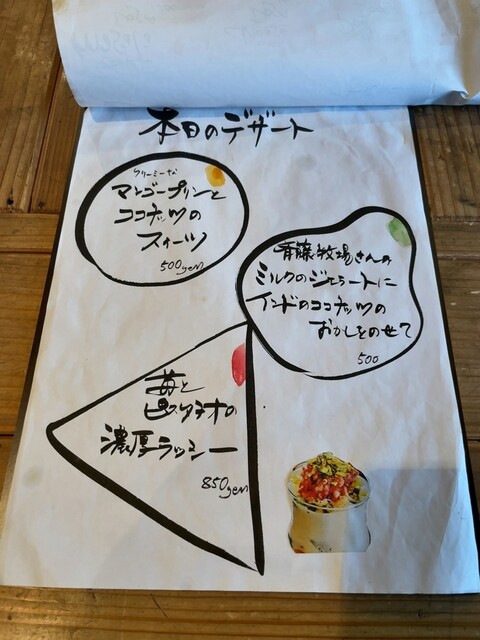 本日のデザート
クリーミーな
マンゴープリンと
ココナッツの
スイーツ
500yen
斉藤牧場さんの
ミルクのジェラートに
インドのココナッツの
おかしをのせて
500
苺と
ピスタチオの
濃厚ラッシー
850yen